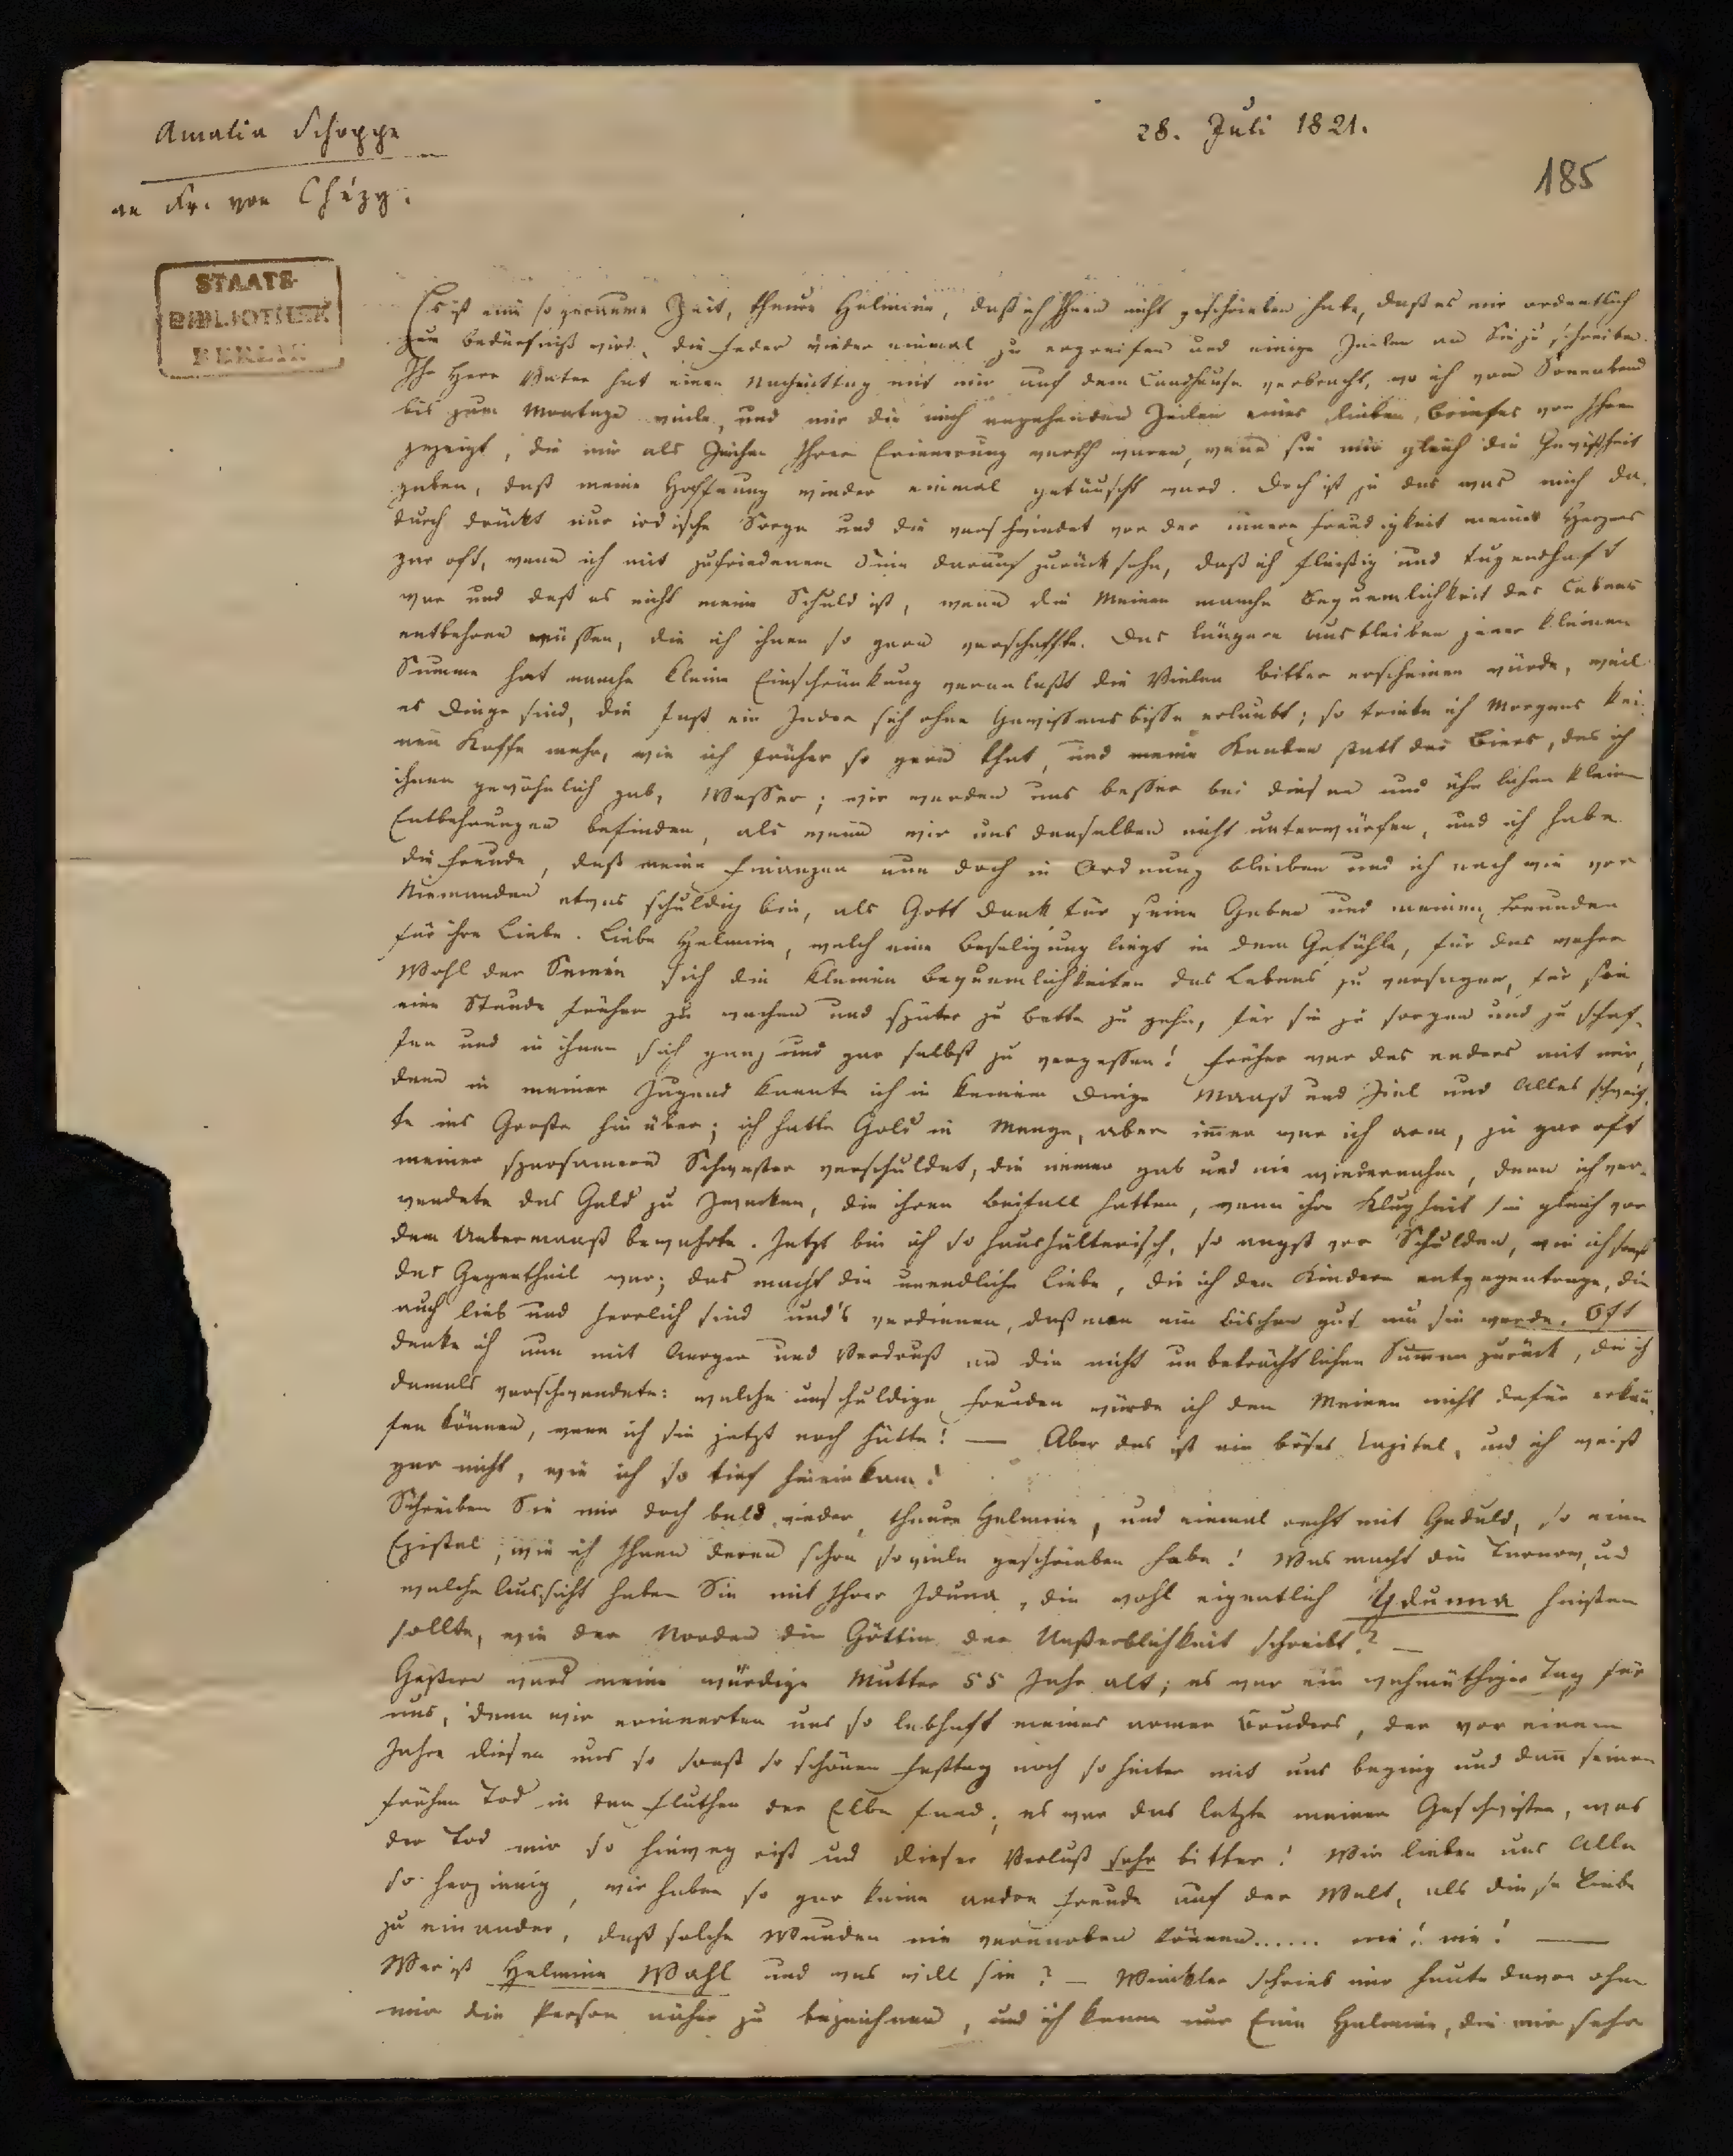 Amalia Schoppe
an Fr. von Chézy.
28. Juli 1821.
185
STAATS-
BIBLIOTHEK
BERLIN
Es ist eine so geraume Zeit, theure Helmine, daß ich Ihnen nicht geschrieben habe, daß es mir ordentlich
zum Bedürfniß wird, die Feder wieder einmal zu ergreifen und einige Zeilen an Sie zu schreiben.
Ihr Herr Vater hat einen Nachmittag mit mir auf dem Landhause verbracht, wo ich vom Sonnabend
bis zum Montage weile, und mir die mich angehenden Zeilen eines lieben Briefes von Ihnen
gezeigt, die mir als Zeichen Ihrer Erinnerung werth waren, wenn sie mir gleich die Gewißheit
gaben, daß meine Hoffnung wieder einmal getäuscht ward. Doch ist ja das was mich da-
durch drückt nur irdische Sorge und die verschwindet vor der innern Freudigkeit meines Herzens
gar oft, wenn ich mit zufriedenem Sinn darauf zurück sehe, daß ich fleißig und tugendhaft
war und daß es nicht meine Schuld ist, wenn die Meinen manche Bequemlichkeit des Lebens
entbehren müssen, die ich ihnen so gern verschaffte. Das längere Ausbleiben jener kleinen
Summe hat manche kleine Einschränkung veranlaßt die Vielen bitter erscheinen würde, weil
es Dinge sind, die fast ein Jeder sich ohne Gewissensbisse erlaubt; so trinke ich Morgens kei-
nen Kaffe mehr, wie ich früher so gern that, und meine Knaben statt des Biers, das ich
ihnen gewöhnlich gab, Wasser; wir werden uns besser bei diesen und ähnlichen kleinen
Entbehrungen befinden, als wenn wir uns denselben nicht unterwürfen, und ich habe
die Freude, daß meine Finanzen nun doch in Ordnung bleiben und ich nach wie vor
Niemanden etwas schuldig bin, als Gott Dank für seine Gaben und meinen Freunden
für ihre Liebe. Liebe Helmine, welch eine Beseligung liegt in dem Gefühle, für das wahre
Wohl der Seinen sich die kleinen Bequemlichkeiten des Lebens zu versagen, für sie
eine Stunde früher zu wachen und später zu Bette zu gehn, für sie zu sorgen und zu schaf-
fen und in ihnen sich ganz und gar selbst zu vergessen! Früher war das anders mit mir,
denn in meiner Jugend kannte ich in keinem Dinge Maaß und Ziel und Alles schweif-
te ins Große hinüber; ich hatte Geld in Menge, aber immer war ich arm, ja gar oft
meiner sparsamern Schwester verschuldet, die immer gab und nie wiedernahm, denn ich ver-
wendete das Geld zu Zwecken, die ihren Beifall hatten, wenn ihre Klugheit sie gleich vor
dem Uebermaaß bewahrte. Jetzt bin ich so haushälterisch, so angst vor Schulden, wie ich sonst
das Gegentheil war; das macht die unendliche Liebe, die ich den Kindern entgegentrage, die
auch lieb und herrlich sind und's verdienen, daß man ein bischen gut um sie werde. Oft
denke ich nun mit Aerger und Verdruß an die nicht unbeträchtlichen Summen zurück, die ich
damals verschwendete: welche unschuldige Freuden würde ich den Meinen nicht dafür erkau-
fen können, wenn ich sie jetzt noch hätte! — Aber das ist ein böses Capitel, und ich weiß
gar nicht, wie ich so tief hineinkam!
Schreiben Sie mir doch bald wieder, theure Helmine, und einmal recht mit Geduld, so eine
Epistel, wie ich Ihnen deren schon so viele geschrieben habe! Was macht die Tarnow, und
welche Aussicht haben Sie mit Ihrer Iduna, die wohl eigentlich Ydunna heißen
sollte, wie der Norden die Göttin der Unsterblichkeit schreibt? —
Gestern ward meine würdige Mutter 55 Jahr alt; es war ein wehmüthiger Tag für
uns, denn wir erinnerten uns so lebhaft meines armen Bruders, der vor einem
Jahre diesen uns so sonst so schönen Festtag noch so heiter mit uns beging und dann seinen
frühen Tod in den Fluthen der Elbe fand; es war das letzte meiner Geschwister, was
der Tod mir so hinweg riß und dieser Verlust sehr bitter! Wir lieben uns Alle
so herzinnig, wir haben so gar keine andre Freude auf der Welt, als diese Liebe
zu einander, daß solche Wunden nie vernarben können...... nie! nie! —
Wer ist Helmine Wahl und was will sie? — Winkler schrieb mir heute davon ohne
mir die Person näher zu bezeichnen, und ich kenne nur Eine Helmine, die mir sehr